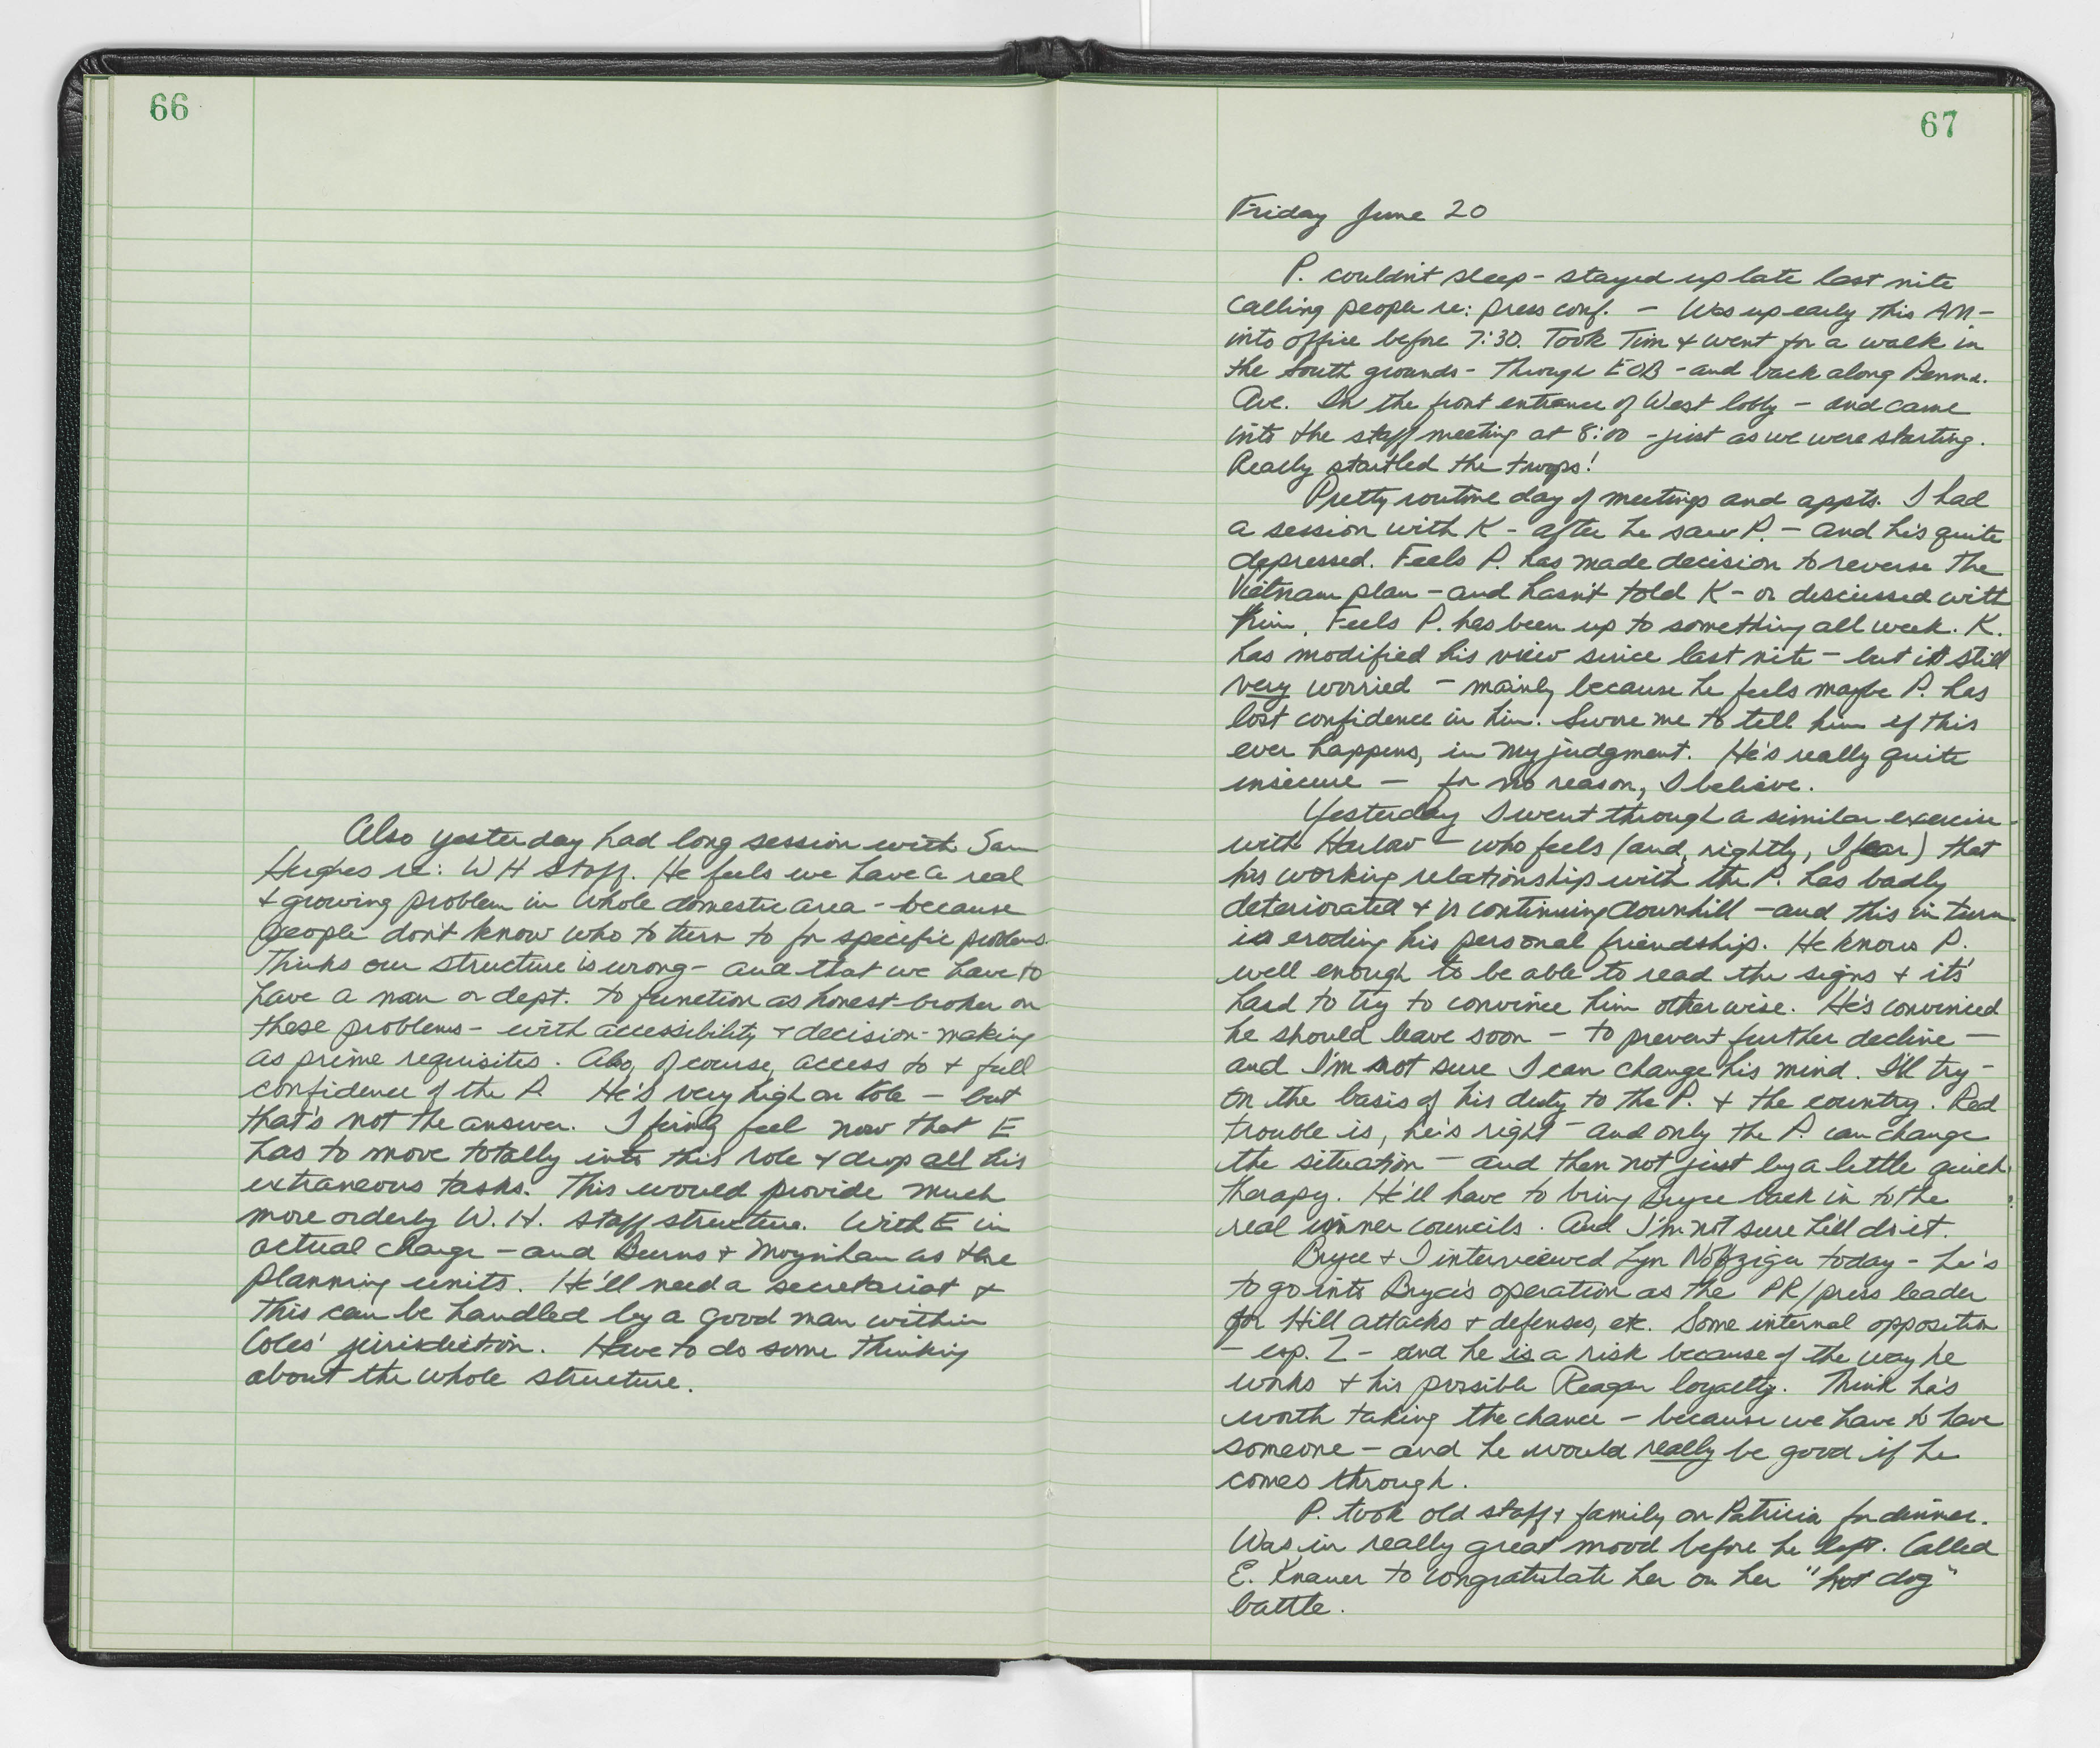 66
Also yesterday had long session with Sam
Hughes re: WH Staff. He feels we have a real
& growing problem in whole domestic area - because
people don't know who to turn to for specific problems.
Thinks our structure is wrong - and that we have to
have a man or dept. to function as honest-broker on
these problems - with accessibility & decision-making
as prime requisites. Also, of course, access to & full
confidence of the P. He's very high on Cole - but
that's not the answer. I firmly feel now that E
has to move totally into this role & drop all his
extraneous tasks. This would provide much
more orderly W.H. staff structure. With E in
actual charge - and Burns & Moynihan as the
planning units. He'll need a secretariat &
this can be handled by a good man within
Coles' jurisdiction. Have to do some thinking
about the whole structure.
67
Friday June 20
P. couldn't sleep - stayed up late last nite
calling people re: press conf. - Was up early this AM -
into office before 7:30. Took Tim & went for a walk in
the South grounds - Through EOB - and back along Penna.
Ave. In the front entrance of West lobby - and came
into the staff meeting at 8:00 - just as we were starting.
Really startled the troops!
Pretty routine day of meetings and appts. I had
a session with K - after he saw P. - and he's quite
depressed. Feels P. has made decision to reverse the
Vietnam plan - and hasn't told K - or discussed with
him. Feels P. has been up to something all week. K.
has modified his view since last nite - but is still
very worried - mainly because he feels maybe P. has
lost confidence in him. Swore me to tell him if this
ever happens, in my judgment. He's really quite
insecure - for no reason, I believe.
Yesterday I went through a similar exercise
with Harlow - who feels (and, rightly, I fear) that
his working relationship with the P. has badly
deteriorated & is continuing downhill - and this in turn
is eroding his personal friendship. He knows P.
well enough to be able to read the signs & its
hard to try to convince him otherwise. He's convinced
he should leave soon - to prevent further decline -
and I'm not sure I can change his mind. I'll try -
on the basis of his duty to the P. & the country. Real
trouble is, he's right - and only the P. can change
the situation - and then not just by a little quick
therapy. He'll have to bring Bryce back in to the
real inner councils. And I'm not sure he'll do it.
Bryce & I interviewed Lyn Nofziger today - he's
to go into Bryce's operation as the PR/press leader
for Hill attacks & defenses, etc. Some internal opposition
- esp. Z - and he is a risk because of the way he
works & his possible Reagan loyalty. Think he's
worth taking the chance - because we have to have
someone - and he would really be good if he
comes through.
P. took old staff & family on Patricia for dinner.
Was in really great mood before he left. Called
E. Knauer to congratulate her on her "hot dog"
battle.